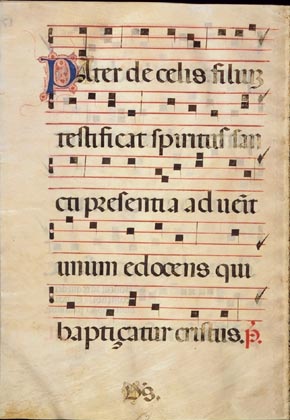 Pater de celis filium
testificat spiritus san
cti presentia aduenit
unum edocens qui
baptiçatur cristus. p.